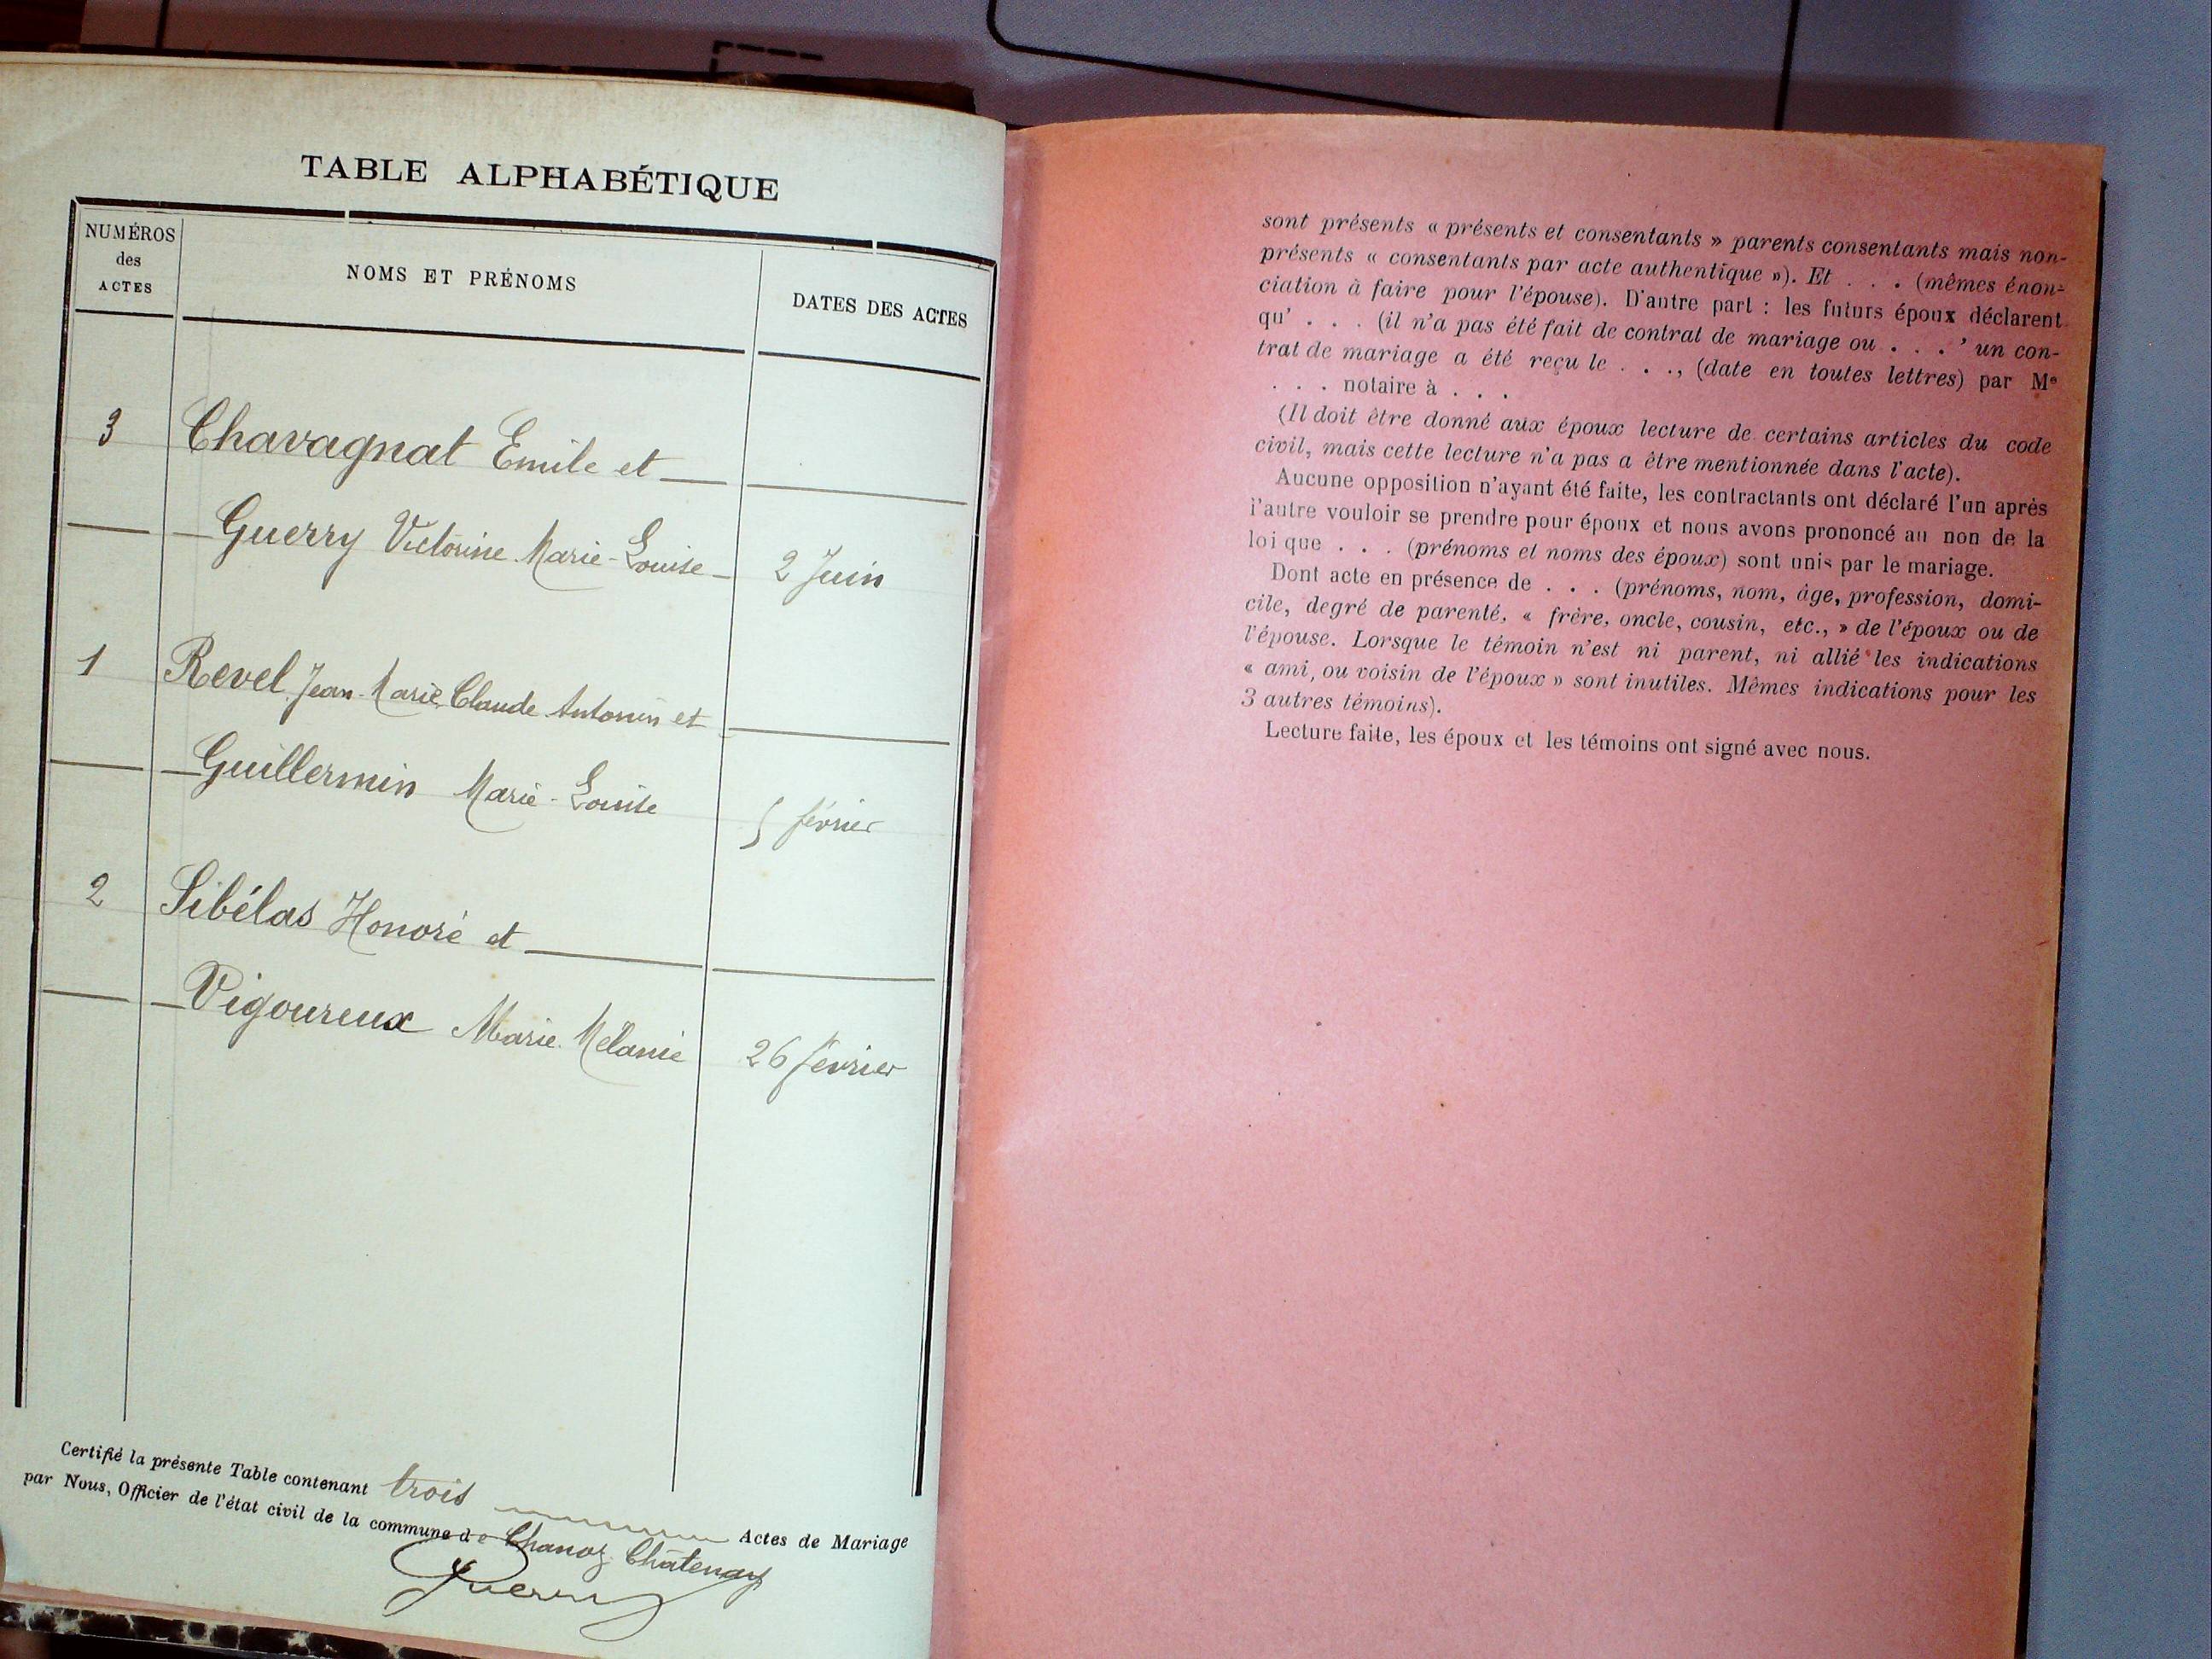 TABLE ALPHABÉTIQUE
NUMÉROS des ACTES
NOMS ET PRÉNOMS
DATES DES ACTES
3 Chavagnat Emile et
Guerry Victorine Marie-Louise 2 Juin
1 Revel Jean-Marie Claude Antonin et
Guillermin Marie-Louise 5 février
2 Sibélas Honoré et
Vigoureux Marie Mélanie 26 février
Certifié la présente Table contenant trois Actes de Mariage
par Nous, Officier de l'état civil de la commune de Chanoz Châtenay
Guerry
sont présents « présents et consentants » parents consentants mais non-
présents « consentants par acte authentique »). Et . . . (mêmes énon-
ciation à faire pour l'épouse). D'autre part : les futurs époux déclarent
qu' . . . (il n'a pas été fait de contrat de mariage ou . . . ' un con-
trat de mariage a été reçu le . . ., (date en toutes lettres) par Me
. . . notaire à . . .
(Il doit être donné aux époux lecture de certains articles du code
civil, mais cette lecture n'a pas a être mentionnée dans l'acte).
Aucune opposition n'ayant été faite, les contractants ont déclaré l'un après
l'autre vouloir se prendre pour époux et nous avons prononcé au non de la
loi que . . . (prénoms et noms des époux) sont unis par le mariage.
Dont acte en présence de . . . (prénoms, nom, âge, profession, domi-
cile, degré de parenté, « frère, oncle, cousin, etc., » de l'époux ou de
l'épouse. Lorsque le témoin n'est ni parent, ni allié les indications
« ami, ou voisin de l'époux » sont inutiles. Mêmes indications pour les
3 autres témoins).
Lecture faite, les époux et les témoins ont signé avec nous.